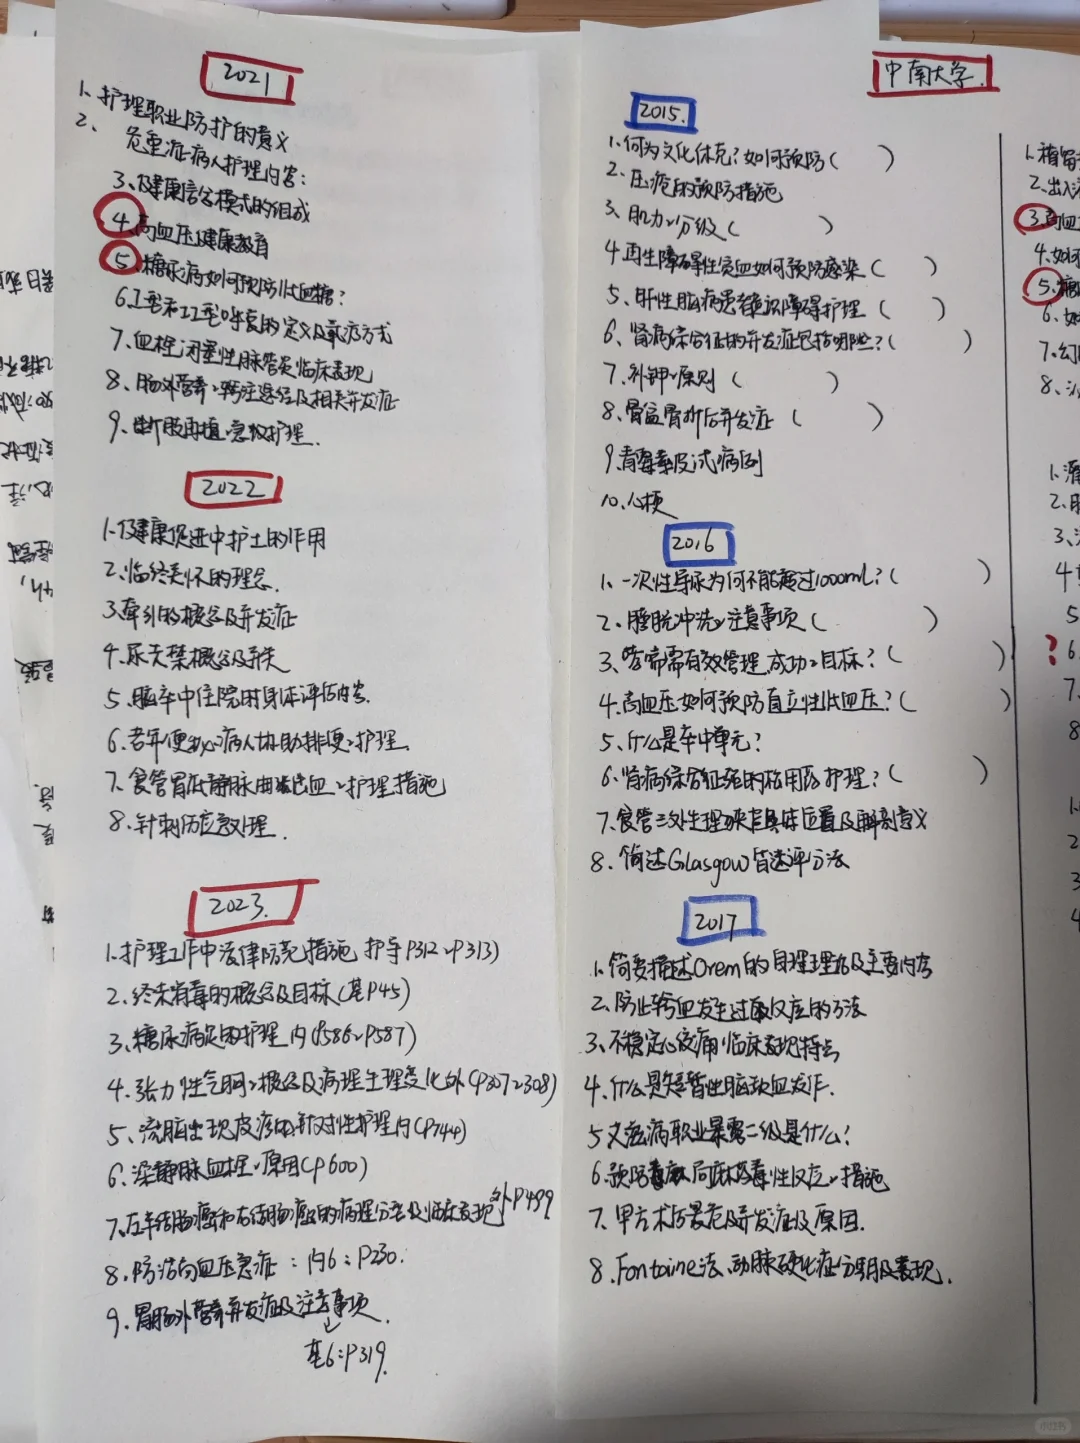 2021
1、护理职业防护的意义
2、危重症病人护理内容:
3、健康信念模式的组成
4、高血压健康教育
5、糖尿病如何预防低血糖?
6、I型和II型呼衰的定义及氧疗方式
7、血栓闭塞性脉管炎临床表现
8、肠外营养、输注途径及相关并发症
9、断肢再植、急救护理.
2022
1、健康促进中护士的作用
2、临终关怀的理念.
3、牵引的概念及并发症
4、尿失禁概念及
5、脑卒中住院时身体评估内容.
6、老年便秘病人协助排便、护理.
7、食管胃底静脉曲张出血、护理措施
8、针刺伤应急处理.
2023.
1、护理工作中法律防范措施 护导P312~P313)
2、终末消毒的概念及目标(基P45)
3、糖尿病足的护理 内(P586~P587)
4、张力性气胸、概念及病理生理变化 外(P307~308)
5、流脑出现皮疹的针对性护理 内(P744)
6、深静脉血栓、原因(P600)
7、左半结肠癌和右结肠癌的病理分型及临床表现 外P499
8、防治高血压急症:内6:P230.
9、胃肠外营养并发症及注意事项.
基6:P319.
中南大学.
2015.
1、何为文化休克?如何预防( )
2、压疮的预防措施
3、肌力、分级( )
4、再生障碍性贫血如何预防感染( )
5、肝性脑病患者意识障碍护理( )
6、肾病综合征的并发症包括哪些?( )
7、补钾、原则( )
8、骨盆骨折后并发症( )
9、青霉素皮试病例
10、心梗
2016
1、一次性导尿为何不能超过1000mL?( )
2、膀胱冲洗、注意事项( )
3、哮喘需有效管理、成功、目标?( )
4、高血压如何预防直立性低血压?( )
5、什么是卒中单元?
6、肾病综合征的应用及护理?( )
7、食管三处生理狭窄具体位置及解剖意义
8、简述Glasgow昏迷评分法
2017
1、简要描述Orem的自理理论及主要内容
2、防止输血发生过敏反应的方法
3、不稳定心绞痛、临床表现特点
4、什么是短暂性脑缺血发作.
5、艾滋病职业暴露二级是什么?
6、预防局麻药毒性反应、措施
7、甲亢术后最危及并发症及原因.
8、Fontaine法、动脉硬化症分期及表现.
1、
2、出入
3、高血
4、如何
5、糖
6、
7、幻
8、
1、
2、
3、
4
5
? 6、
7、
8
1、
2
3
4
小红书